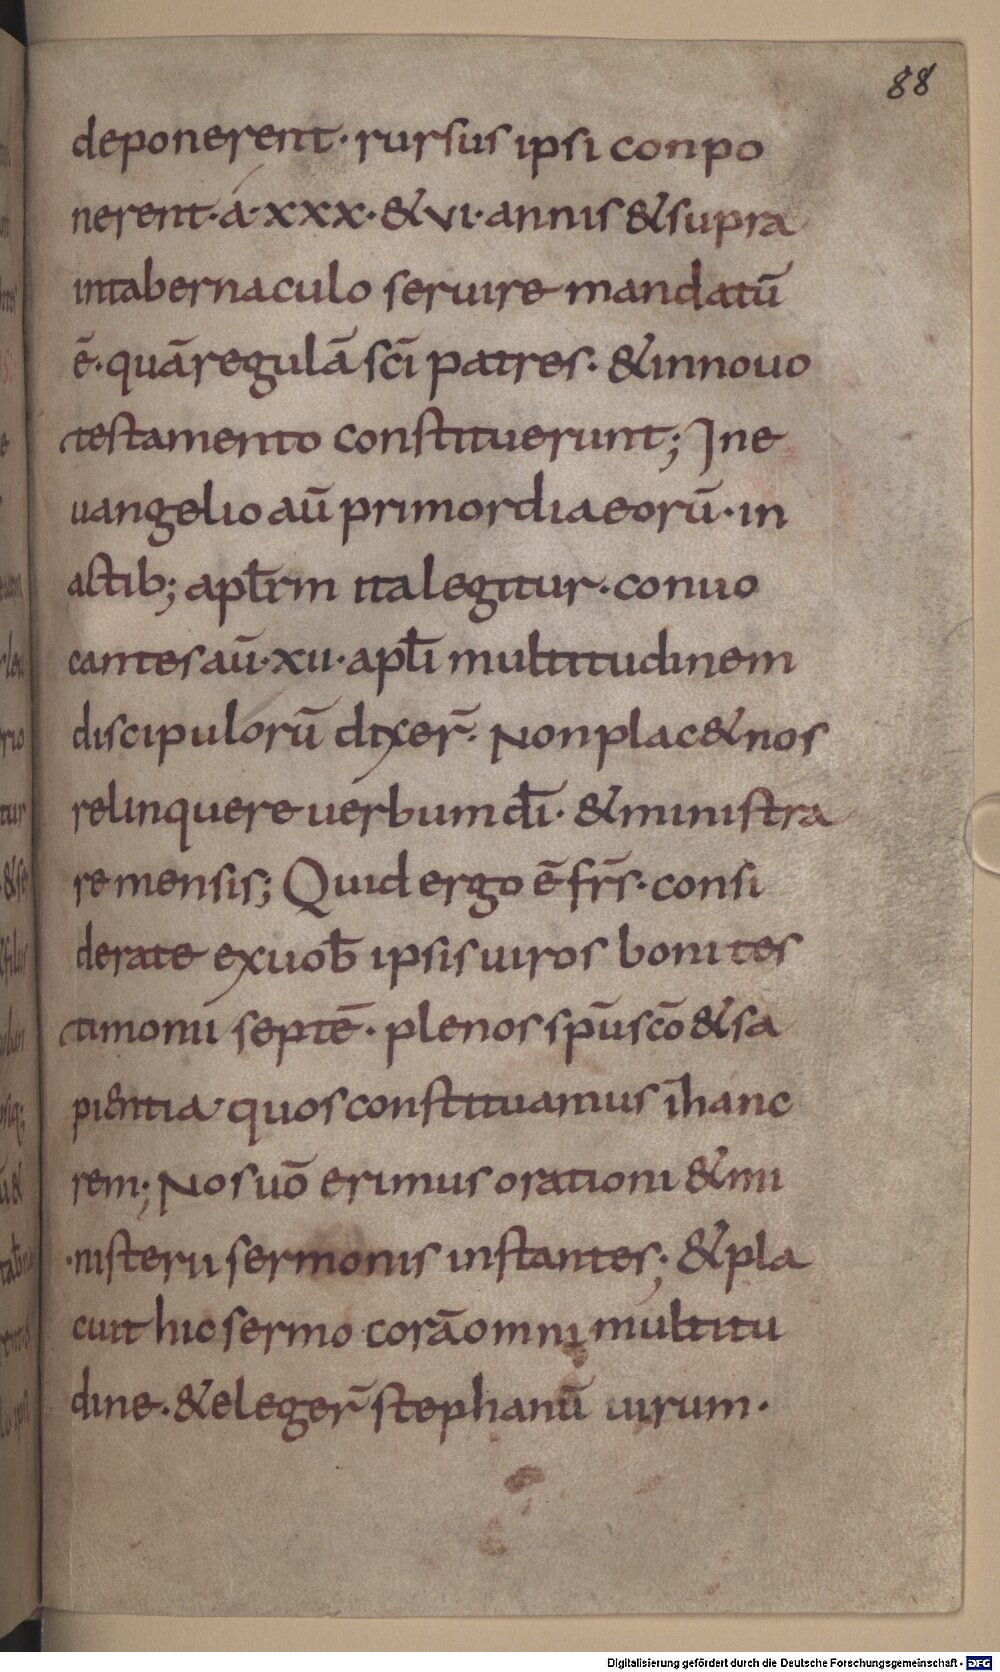 88
deponerent· rursus ipsi conpo
nerent· á· xxx· & vi· annis & supra
intabernaculo seruire mandatū
ē· quā regulā scī patres· & in nouo
testamento constituerunt; In e
uangelio aū primordia eorū· in
actib; apl̄rm ita legitur· conuo
cantes aū· xii· apl̄i multitudinem
discipulorū dixer̄· Non plac& nos
relinquere uerbum dī· & ministra
re mensis; Quid ergo ē fr̄s· consi
derate ex uob̄ ipsis uiros boni tes
timonii septē· plenos sp̄u scō & sa
pientia quos constituamus ī hanc
rem; Nos uō erimus orationi & mi
nisterii sermonis instantes; & pla
cuit hic sermo corā omni multitu
dine· & eleger̄ stephanū uirum·
Digitalisierung gefördert durch die Deutsche Forschungsgemeinschaft - DFG